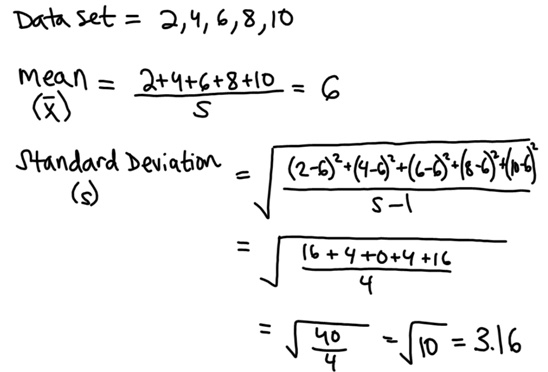 Data set = 2, 4, 6, 8, 10
mean (x̄) = (2+4+6+8+10)/5 = 6
Standard Deviation (s) = √(((2-6)²+(4-6)²+(6-6)²+(8-6)²+(10-6)²)/(5-1))
= √((16+4+0+4+16)/4)
= √(40/4) = √10 = 3.16